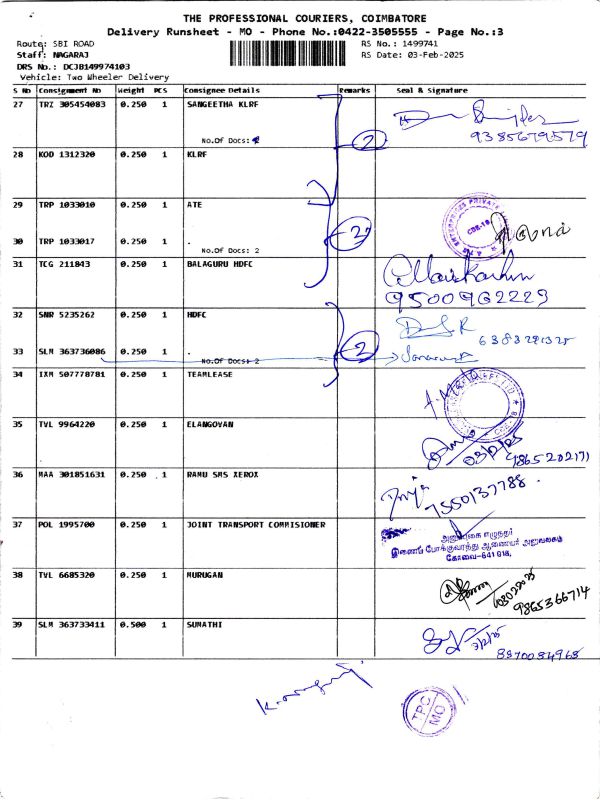 THE PROFESSIONAL COURIERS, COIMBATORE
Delivery Runsheet - MO - Phone No.:0422-3505555 - Page No.:3
Route: SBI ROAD RS No.: 1499741
Staff: NAGARAJ RS Date: 03-Feb-2025
DRS No.: DCJB149974103
Vehicle: Two Wheeler Delivery
S No Consignment No Weight PCS Consignee Details Remarks Seal & Signature
27 TRZ 305454083 0.250 1 SANGEETHA KLRF
9385679579
No.Of Docs: 2
28 KOD 1312320 0.250 1 KLRF
29 TRP 1033010 0.250 1 ATE
30 TRP 1033017 0.250 1 .
No.Of Docs: 2
31 TCG 211843 0.250 1 BALAGURU HDFC
9500962229
32 SNR 5235262 0.250 1 HDFC
33 SLM 363736086 0.250 1 .
No.Of Docs: 2
34 IXM 507778781 0.250 1 TEAMLEASE
35 TVL 9964220 0.250 1 ELANGOVAN
03/2/25
9865202171
36 MAA 301851631 0.250 1 RAMU SMS XEROX
7550137788
37 POL 1995700 0.250 1 JOINT TRANSPORT COMMISIONER
இணைப் போக்குவரத்து ஆணையர் அலுவலகம்
கோவை-641 018.
38 TVL 6685320 0.250 1 MURUGAN
9865366714
39 SLM 363733411 0.500 1 SUMATHI
TPC
MO